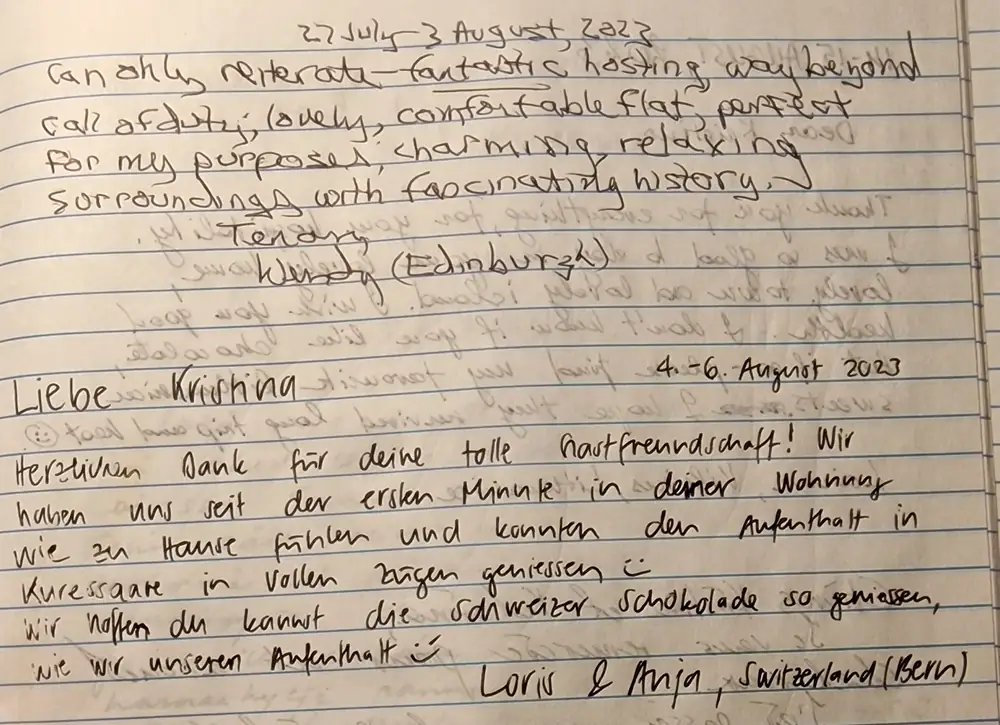 27 July - 3 August, 2023
Can only reiterate - fantastic hosting way beyond
call of duty; lovely, comfortable flat, perfect
for my purposes; charming, relaxing
surroundings with fascinating history.
Wendy (Edinburgh)
Liebe Kristina
4.-6. August 2023
Herzlichen Dank für deine tolle Gastfreundschaft! Wir
haben uns seit der ersten Minute in deiner Wohnung
wie zu Hause fühlen und konnten den Aufenthalt in
Kuressaare in vollen Zügen geniessen
Wir hoffen du kannst die Schweizer Schokolade so geniessen,
wie wir unseren Aufenthalt
Loris & Anja, Switzerland (Bern)